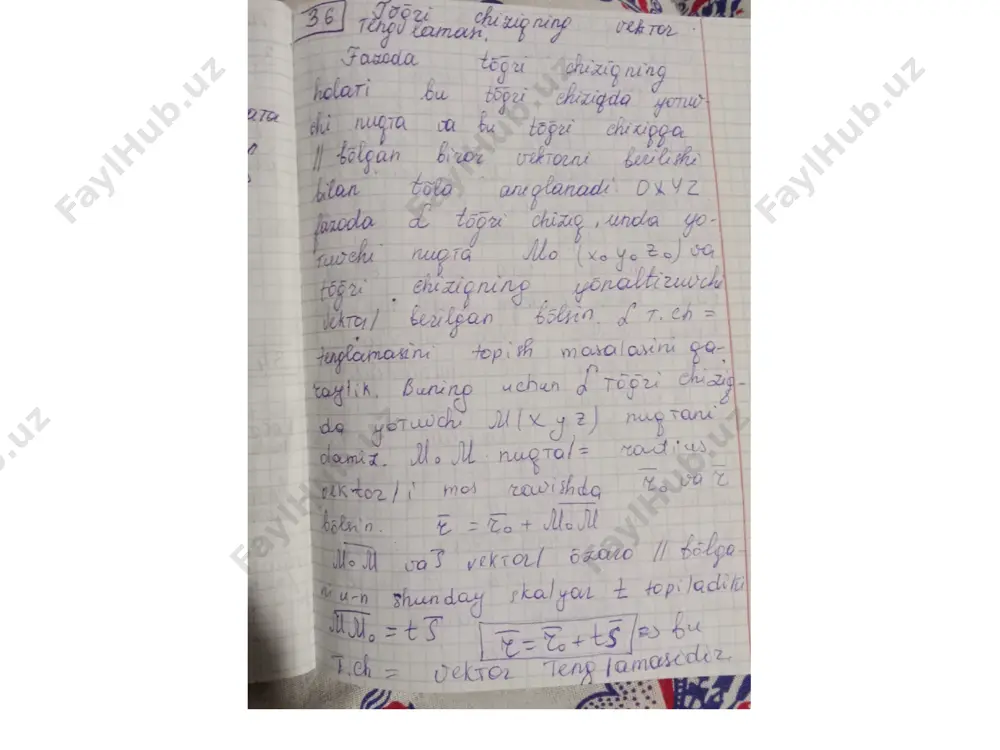 36 Tōğri chiziqning vektor
Tenglamasi.
Fazoda tōğri chiziqning
holati bu tōğri chiziqda yotuv-
chi nuqta va bu tōğri chiziqqa
// bōlgan biror vektorni berilishi
bilan tōla aniqlanadi OXYZ
fazoda L tōğri chiziq, unda yo-
tuvchi nuqta M₀ (x₀ y₀ z₀) va
tōğri chiziqning yōnaltiruvchi
vektor/ berilgan bōlsin. L T.ch =
tenglamasini topish masalasini qa-
raylik. Buning uchun L Tōğri chiziq-
da yotuvchi M(x y z) nuqtani
M₀ M nuqta/= radius
vektor/i mos ravishda r̅₀ va r̅
bōlsin. r̅ = r̅₀ + M̅₀M̅
M̅₀M̅ va S̅ vektor/ ōzaro // bōlga-
ni u-n shunday skalyar t topiladiki
M̅M̅₀ = t S̅ r̅ = r̅₀ + tS̅ => bu
T.ch = vektor Tenglamasidir
ата
FaylHub.uz
FaylHub.uz
FaylHub.uz
.uz
FaylHub.uz
FaylHub.uz